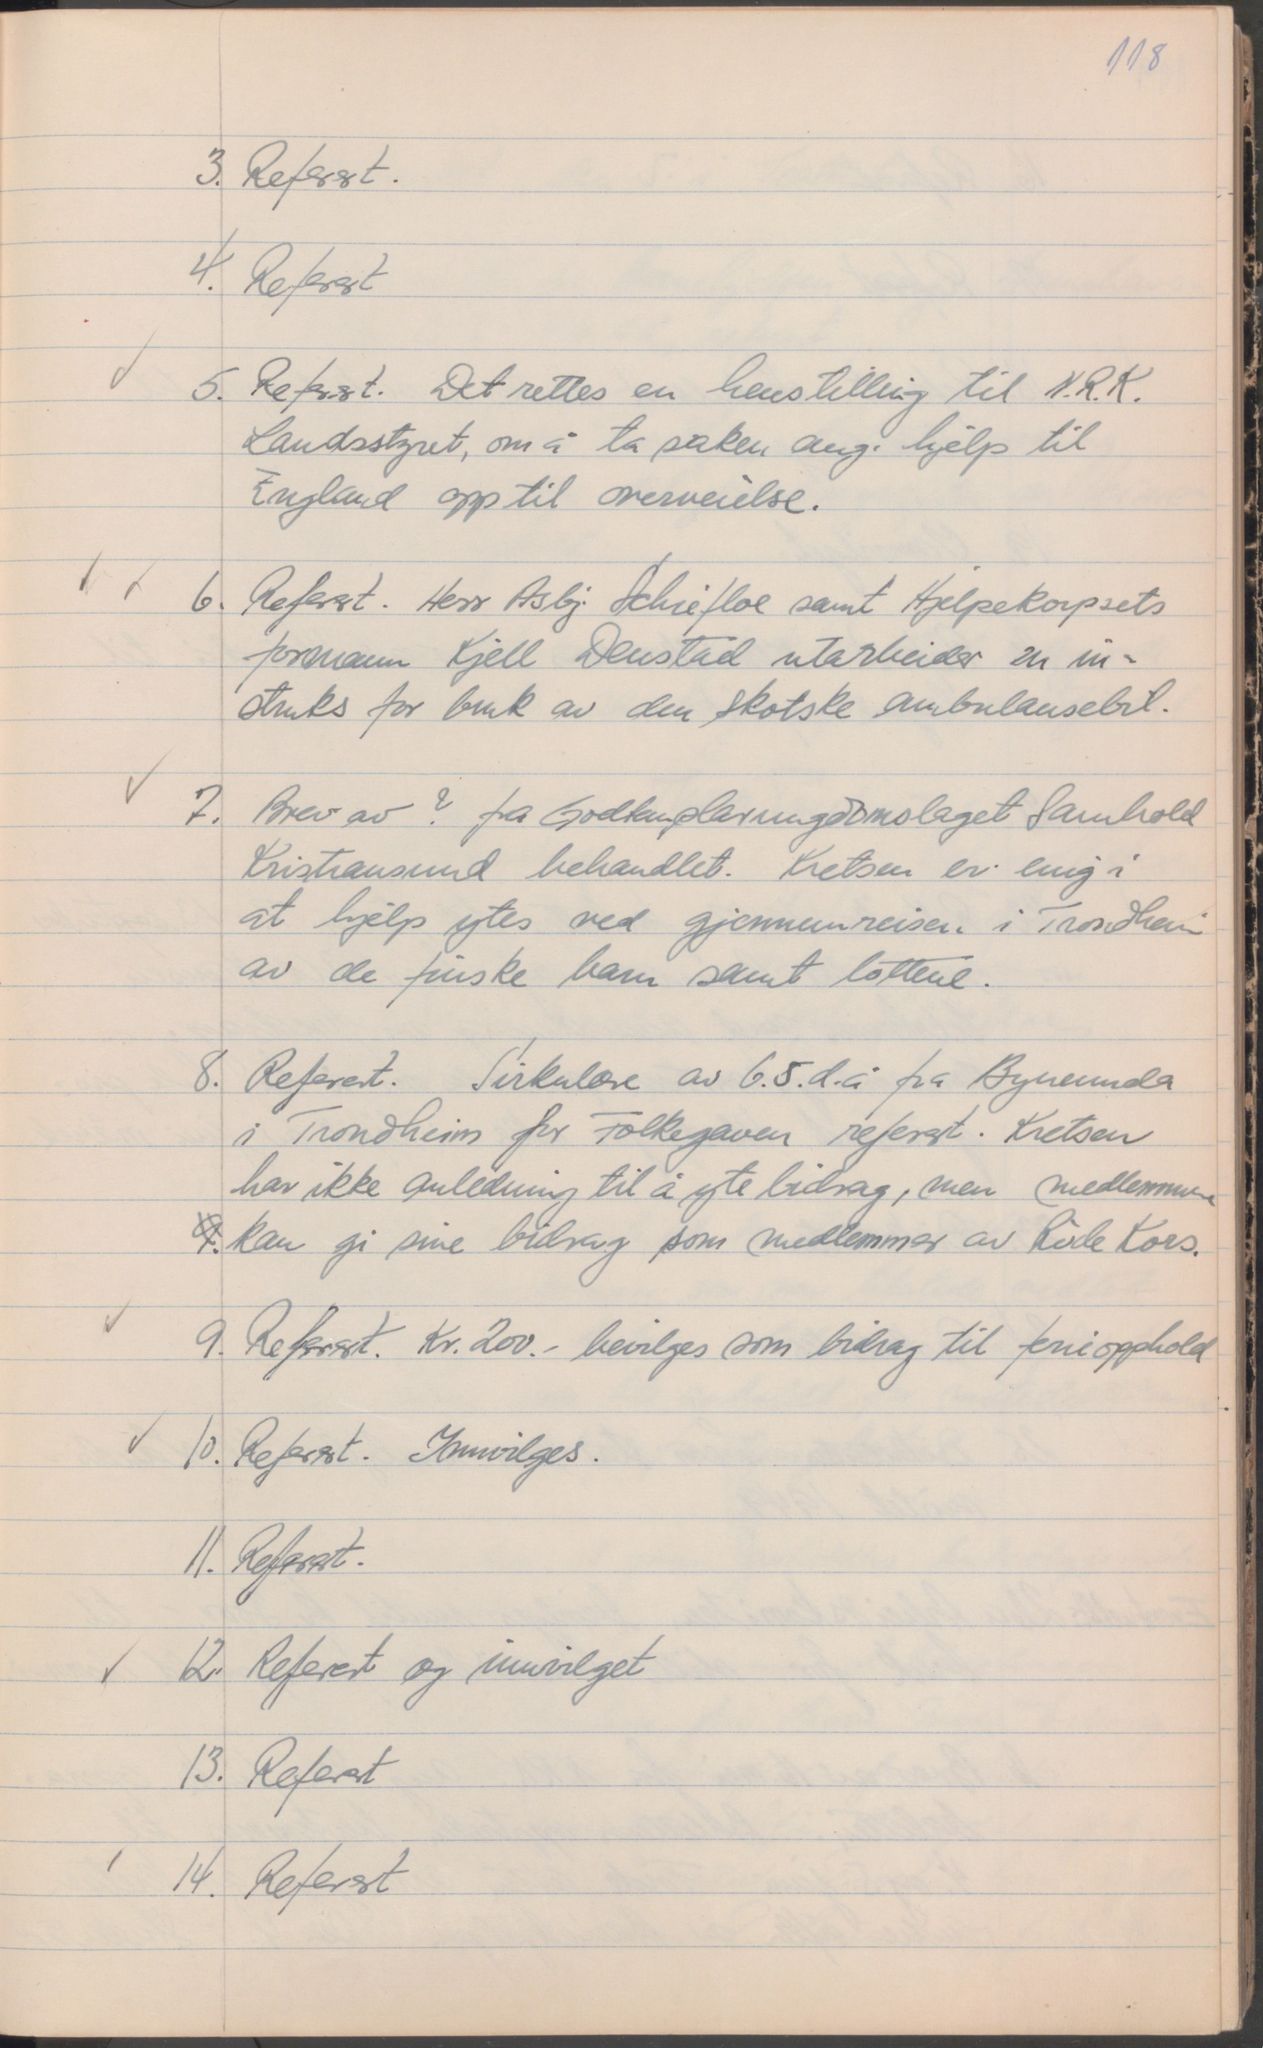 118
3. Referert.
4. Referert
5. Referert. Det rettes en henstilling til N.R.K.
Landsstyret, om å ta saken ang. hjelp til
England opp til overveielse.
6. Referert. Herr Asbj. Schiefloe samt Hjelpekorpsets
formann Kjell Denstad utarbeider en in-
struks for bruk av den skotske ambulansebil.
7. Brev av ? fra Godtemplarungdomslaget Samhold
Kristiansund behandlet. Kretsen er enig i
at hjelp ytes ved gjennemreisen i Trondheim
av de finske barn samt lottene.
8. Referert. Sirkulære av 6.5.d.å fra Bynemnda
i Trondheim for Folkegaven referert. Kretsen
har ikke anledning til å yte bidrag, men medlemmene
kan gi sine bidrag som medlemmer av Røde Kors.
9. Referert. Kr. 200.- bevilges som bidrag til ferieopphold
10. Referert. Innvilges.
11. Referert.
12. Referert og innvilget
13. Referert
14. Referert